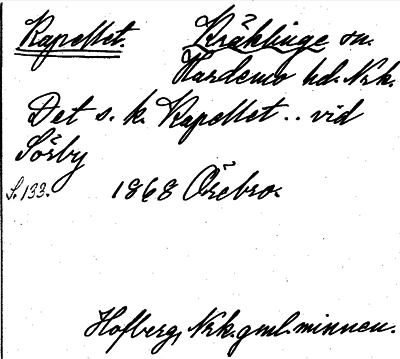 Kapellet. Kräklinge sn.
Hardemo hd. Nrk.
Det s. k. Kapellet .. vid
Sörby
S. 133. 1868 Örebro.
Hofberg, Nrk. gml. minnen.